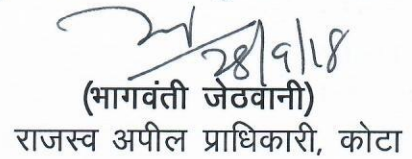 28/9/18
(भागवंती जेठवानी)
राजस्व अपील प्राधिकारी, कोटा